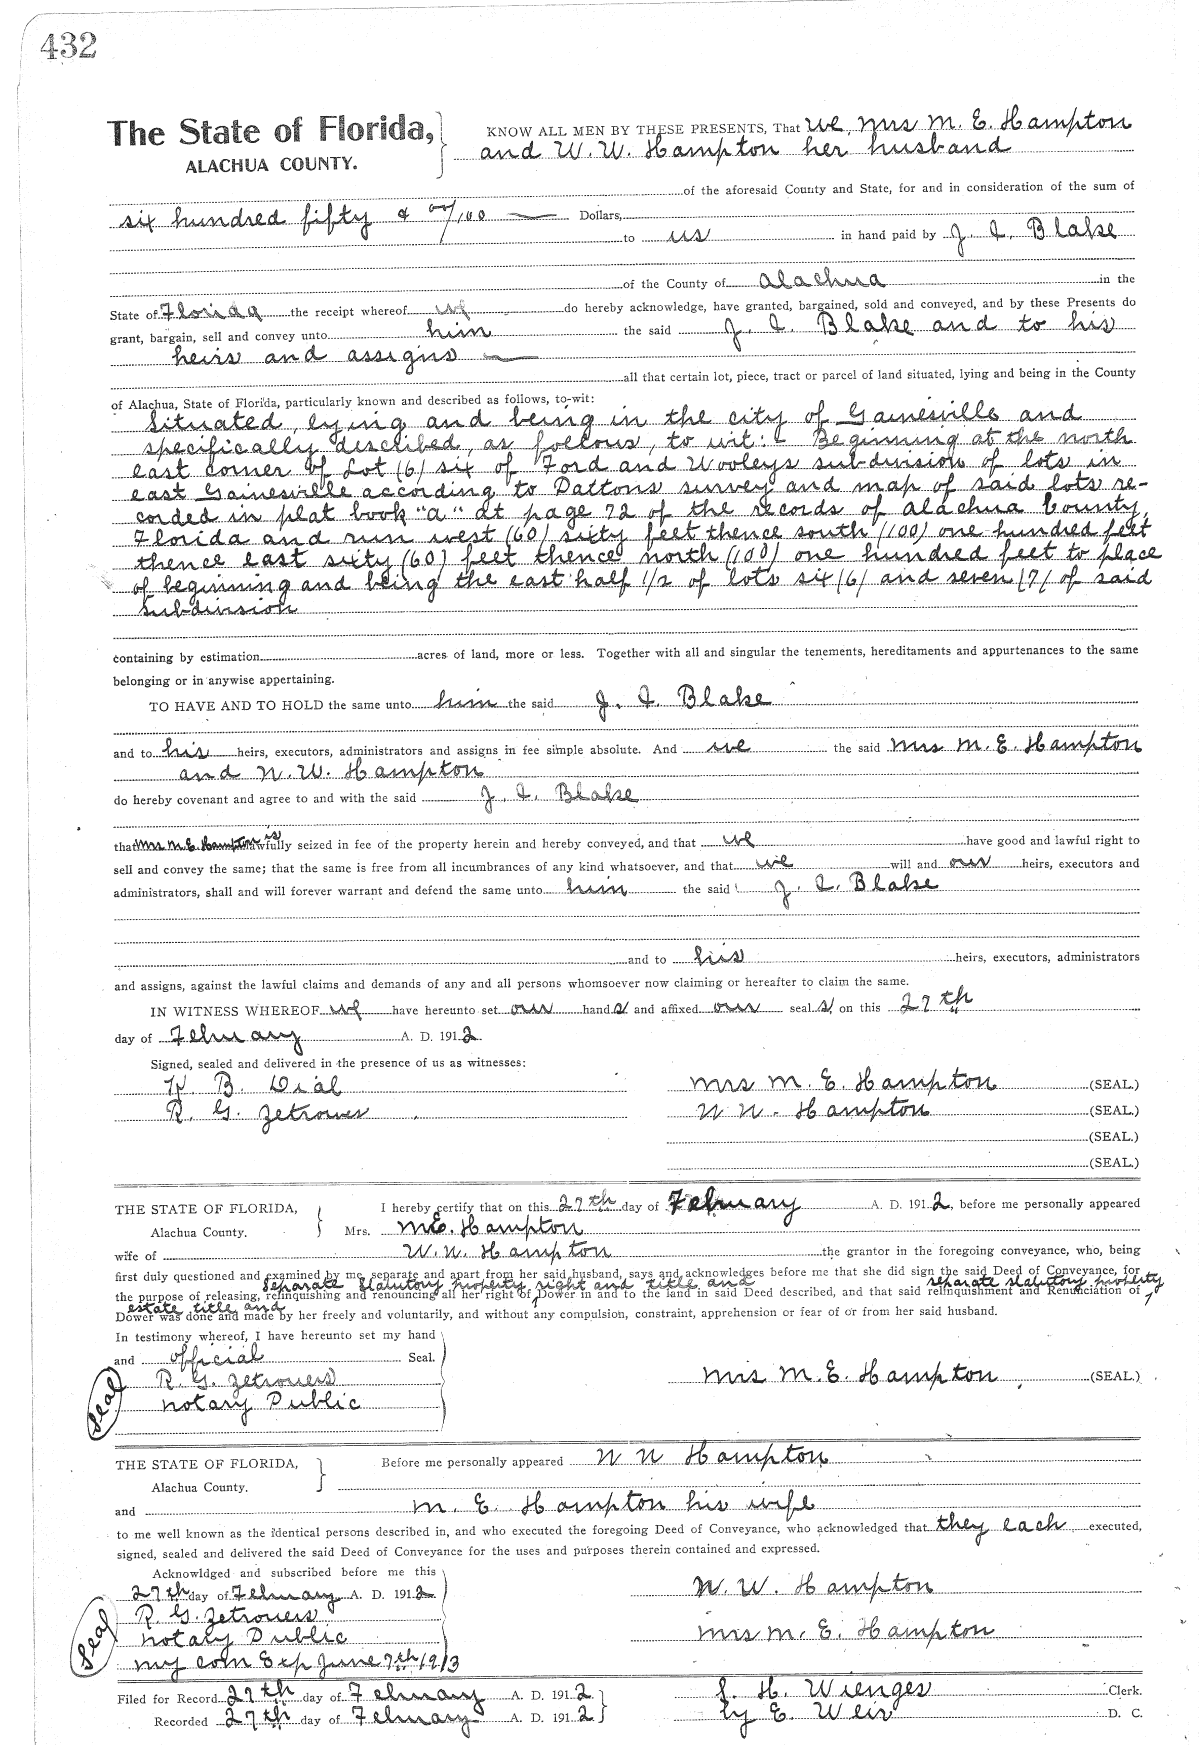 432
The State of Florida,
ALACHUA COUNTY.
KNOW ALL MEN BY THESE PRESENTS, That we, Mrs M. E. Hampton
and W. W. Hampton her husband
of the aforesaid County and State, for and in consideration of the sum of
six hundred fifty & 00/100 Dollars,
to us in hand paid by J. I. Blake
of the County of Alachua in the
State of Florida the receipt whereof we do hereby acknowledge, have granted, bargained, sold and conveyed, and by these Presents do
grant, bargain, sell and convey unto him the said J. I. Blake and to his
heirs and assigns
all that certain lot, piece, tract or parcel of land situated, lying and being in the County
of Alachua, State of Florida, particularly known and described as follows, to-wit:
Situated, lying and being in the city of Gainesville and
specifically described, as follows, to wit:- Beginning at the north
east corner of Lot (6) six of Ford and Wooleys subdivision of lots in
east Gainesville according to Dattons survey and map of said lots re-
corded in plat book "a" at page 72 of the records of Alachua County,
Florida and run west (60) sixty feet thence south (100) one hundred feet
thence east sixty (60) feet thence north (100) one hundred feet to place
of beginning and being the east half 1/2 of lots six (6) and seven (7) of said
subdivision
containing by estimation acres of land, more or less. Together with all and singular the tenements, hereditaments and appurtenances to the same
belonging or in anywise appertaining.
TO HAVE AND TO HOLD the same unto him the said J. I. Blake
and to his heirs, executors, administrators and assigns in fee simple absolute. And we the said Mrs M. E. Hampton
and W. W. Hampton
do hereby covenant and agree to and with the said J. I. Blake
that Mrs M. E. Hampton is lawfully seized in fee of the property herein and hereby conveyed, and that we have good and lawful right to
sell and convey the same; that the same is free from all incumbrances of any kind whatsoever, and that we will and our heirs, executors and
administrators, shall and will forever warrant and defend the same unto him the said J. I. Blake
and to his heirs, executors, administrators
and assigns, against the lawful claims and demands of any and all persons whomsoever now claiming or hereafter to claim the same.
IN WITNESS WHEREOF we have hereunto set our hands and affixed our seals on this 27th
day of February A. D. 1912.
Signed, sealed and delivered in the presence of us as witnesses:
B. Dial Mrs M. E. Hampton (SEAL.)
R. G. Zetrouer W W. Hampton (SEAL.)
(SEAL.)
(SEAL.)
THE STATE OF FLORIDA,
Alachua County.
I hereby certify that on this 27th day of February A. D. 1912, before me personally appeared
Mrs. M E. Hampton
wife of W. W. Hampton the grantor in the foregoing conveyance, who, being
first duly questioned and examined by me separate and apart from her said husband, says and acknowledges before me that she did sign the said Deed of Conveyance, for
separate statutory property right and title and separate statutory property
the purpose of releasing, relinquishing and renouncing all her right of Dower in and to the land in said Deed described, and that said relinquishment and Renunciation of
estate title and
Dower was done and made by her freely and voluntarily, and without any compulsion, constraint, apprehension or fear of or from her said husband.
In testimony whereof, I have hereunto set my hand
and official Seal.
R. G. Zetrouers Mrs M. E. Hampton (SEAL.)
Seal
Notary Public
THE STATE OF FLORIDA,
Alachua County.
Before me personally appeared W W Hampton
and M. E. Hampton his wife
to me well known as the identical persons described in, and who executed the foregoing Deed of Conveyance, who acknowledged that they each executed,
signed, sealed and delivered the said Deed of Conveyance for the uses and purposes therein contained and expressed.
Acknowldged and subscribed before me this
27th day of February A. D. 1912 W. W. Hampton
R. G. Zetrouers
Seal
Notary Public Mrs M. E. Hampton
my com Exp June 7th 1913
Filed for Record 27th day of February A. D. 1912 S. H. Wienges Clerk.
Recorded 27th day of February A. D. 1912 by E. Weir D. C.